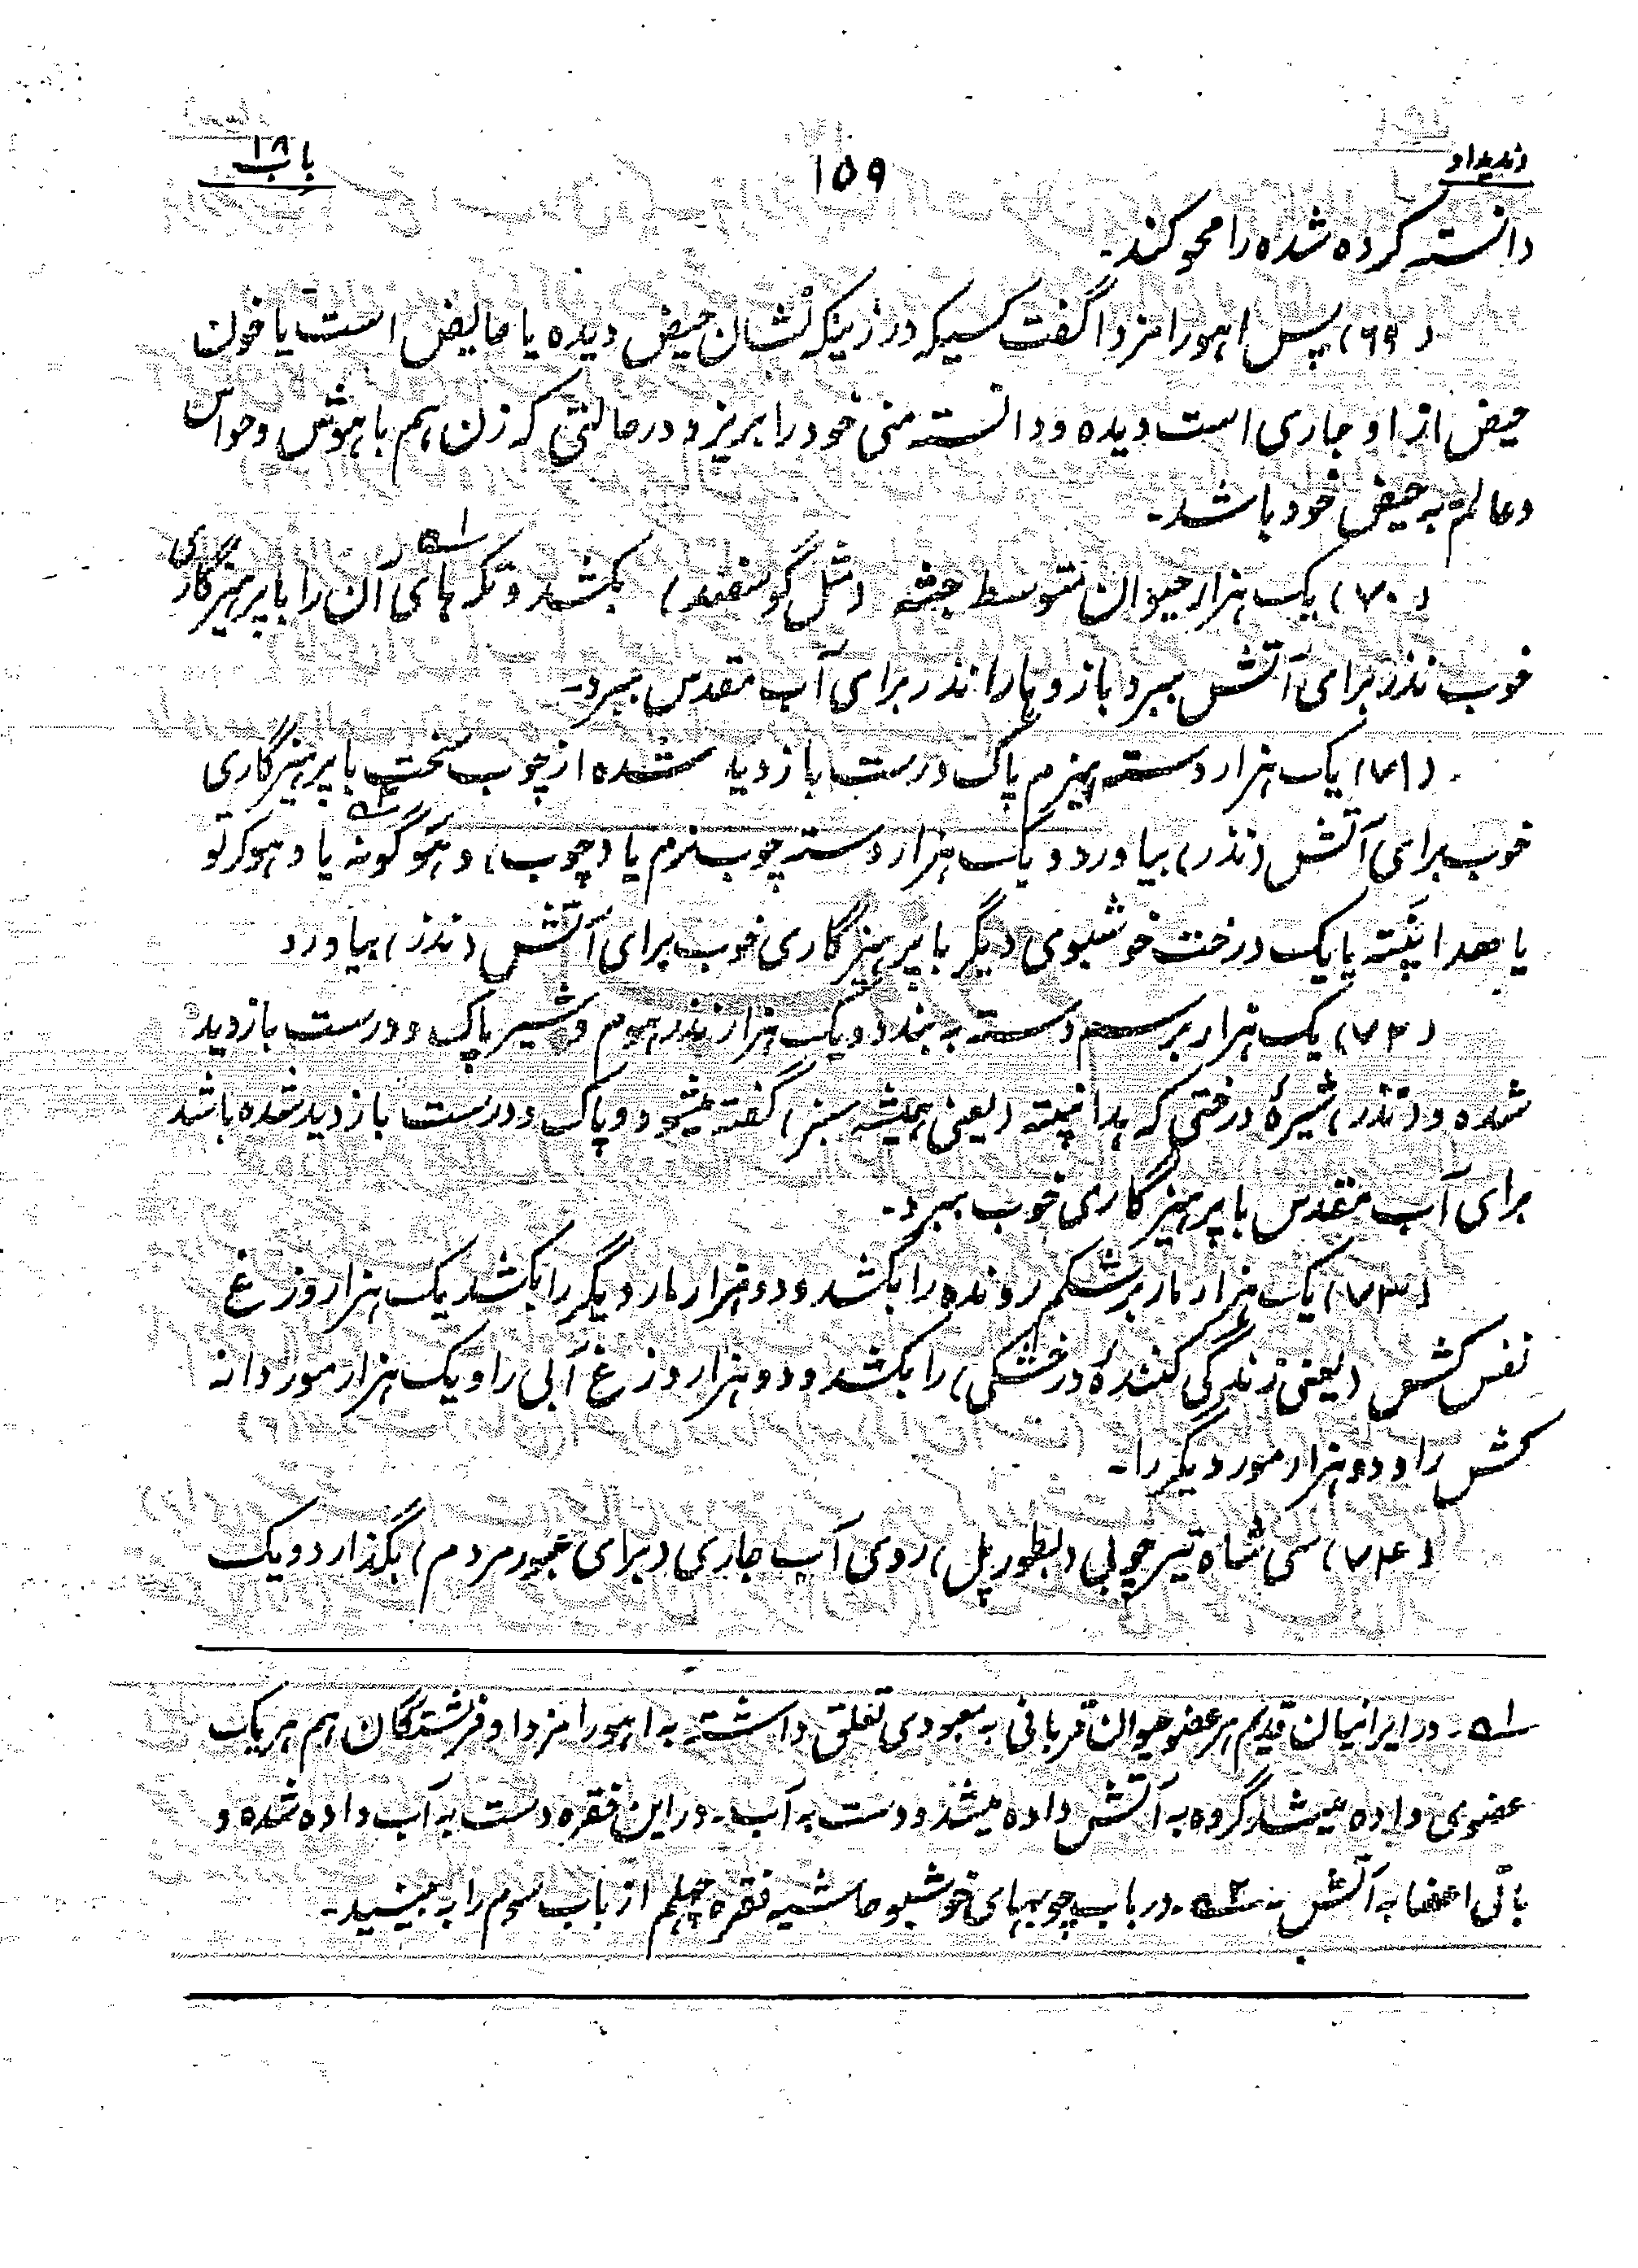 وندیداد
۱۵۹
باب ۱۸
دانسته کرده شده را محو کند-
(۶۹) پس اهورامزدا گفت کسیکه در زنیکه نشان حیض دیده یا حایض است یا خون
حیض از او جاری است دیده و دانسته منی خود را بریزد در حالتی که زن هم با هوش و حواس
و عالم به حیض خود باشد-
(۷۰) یک هزار حیوان متوسط جثه (مثل گوسفند) بکشد و تکه‌های آن را با پرهیزگاری ۵۱
خوب نذر برای آتش ببرد بازوها را نذر برای آب مقدس ببرد-
(۷۱) یک هزار دسته هیزم پاک درست بازدید شده از چوب سخت با پرهیزگاری
خوب برای آتش (نذر) بیاورد و یک هزار دسته چوب نرم یا (چوب) وهوگونه یا وهوکرتو ۵۲
یا هدانپته یا یک درخت خوشبوی دیگر با پرهیزگاری خوب برای آتش (نذر) بیاورد
(۷۲) یک هزار برسم دسته به بندد و یک هزار نذر هوم و شیر پاک و درست بازدید
شده و (نذر) شیرهٔ درختی که هدانپته (یعنی همیشه سبز) گفته میشود و پاک و درست بازدید شده باشد
برای آب مقدس با پرهیزگاری خوب ببرد-
(۷۳) یک هزار مار بر شکم رونده را بکشد و دو هزار مار دیگر را بکشد یک هزار وزغ
نفس کش (یعنی زندگی کنندهٔ در خشکی) را بکشد و دو هزار وزغ آبی را و یک هزار مور دانه
کش را و دو هزار مور دیگر را-
(۷۴) سی شاه تیر چوبی (بطور پل) روی آب جاری (برای عبور مردم) بگذارد و یک
۵۱- در ایرانیان قدیم هر عضو حیوان قربانی به معبودی تعلق داشته به اهورامزدا و فرشتگان هم هر یک
عضوی داده میشد گروه به آتش داده میشد و دست به آب- در این فقره دست به آب داده شده و
باقی اعضا به آتش- ۵۲- در باب چوبهای خوشبو حاشیه فقره چهلم از باب سوم را به بینید-